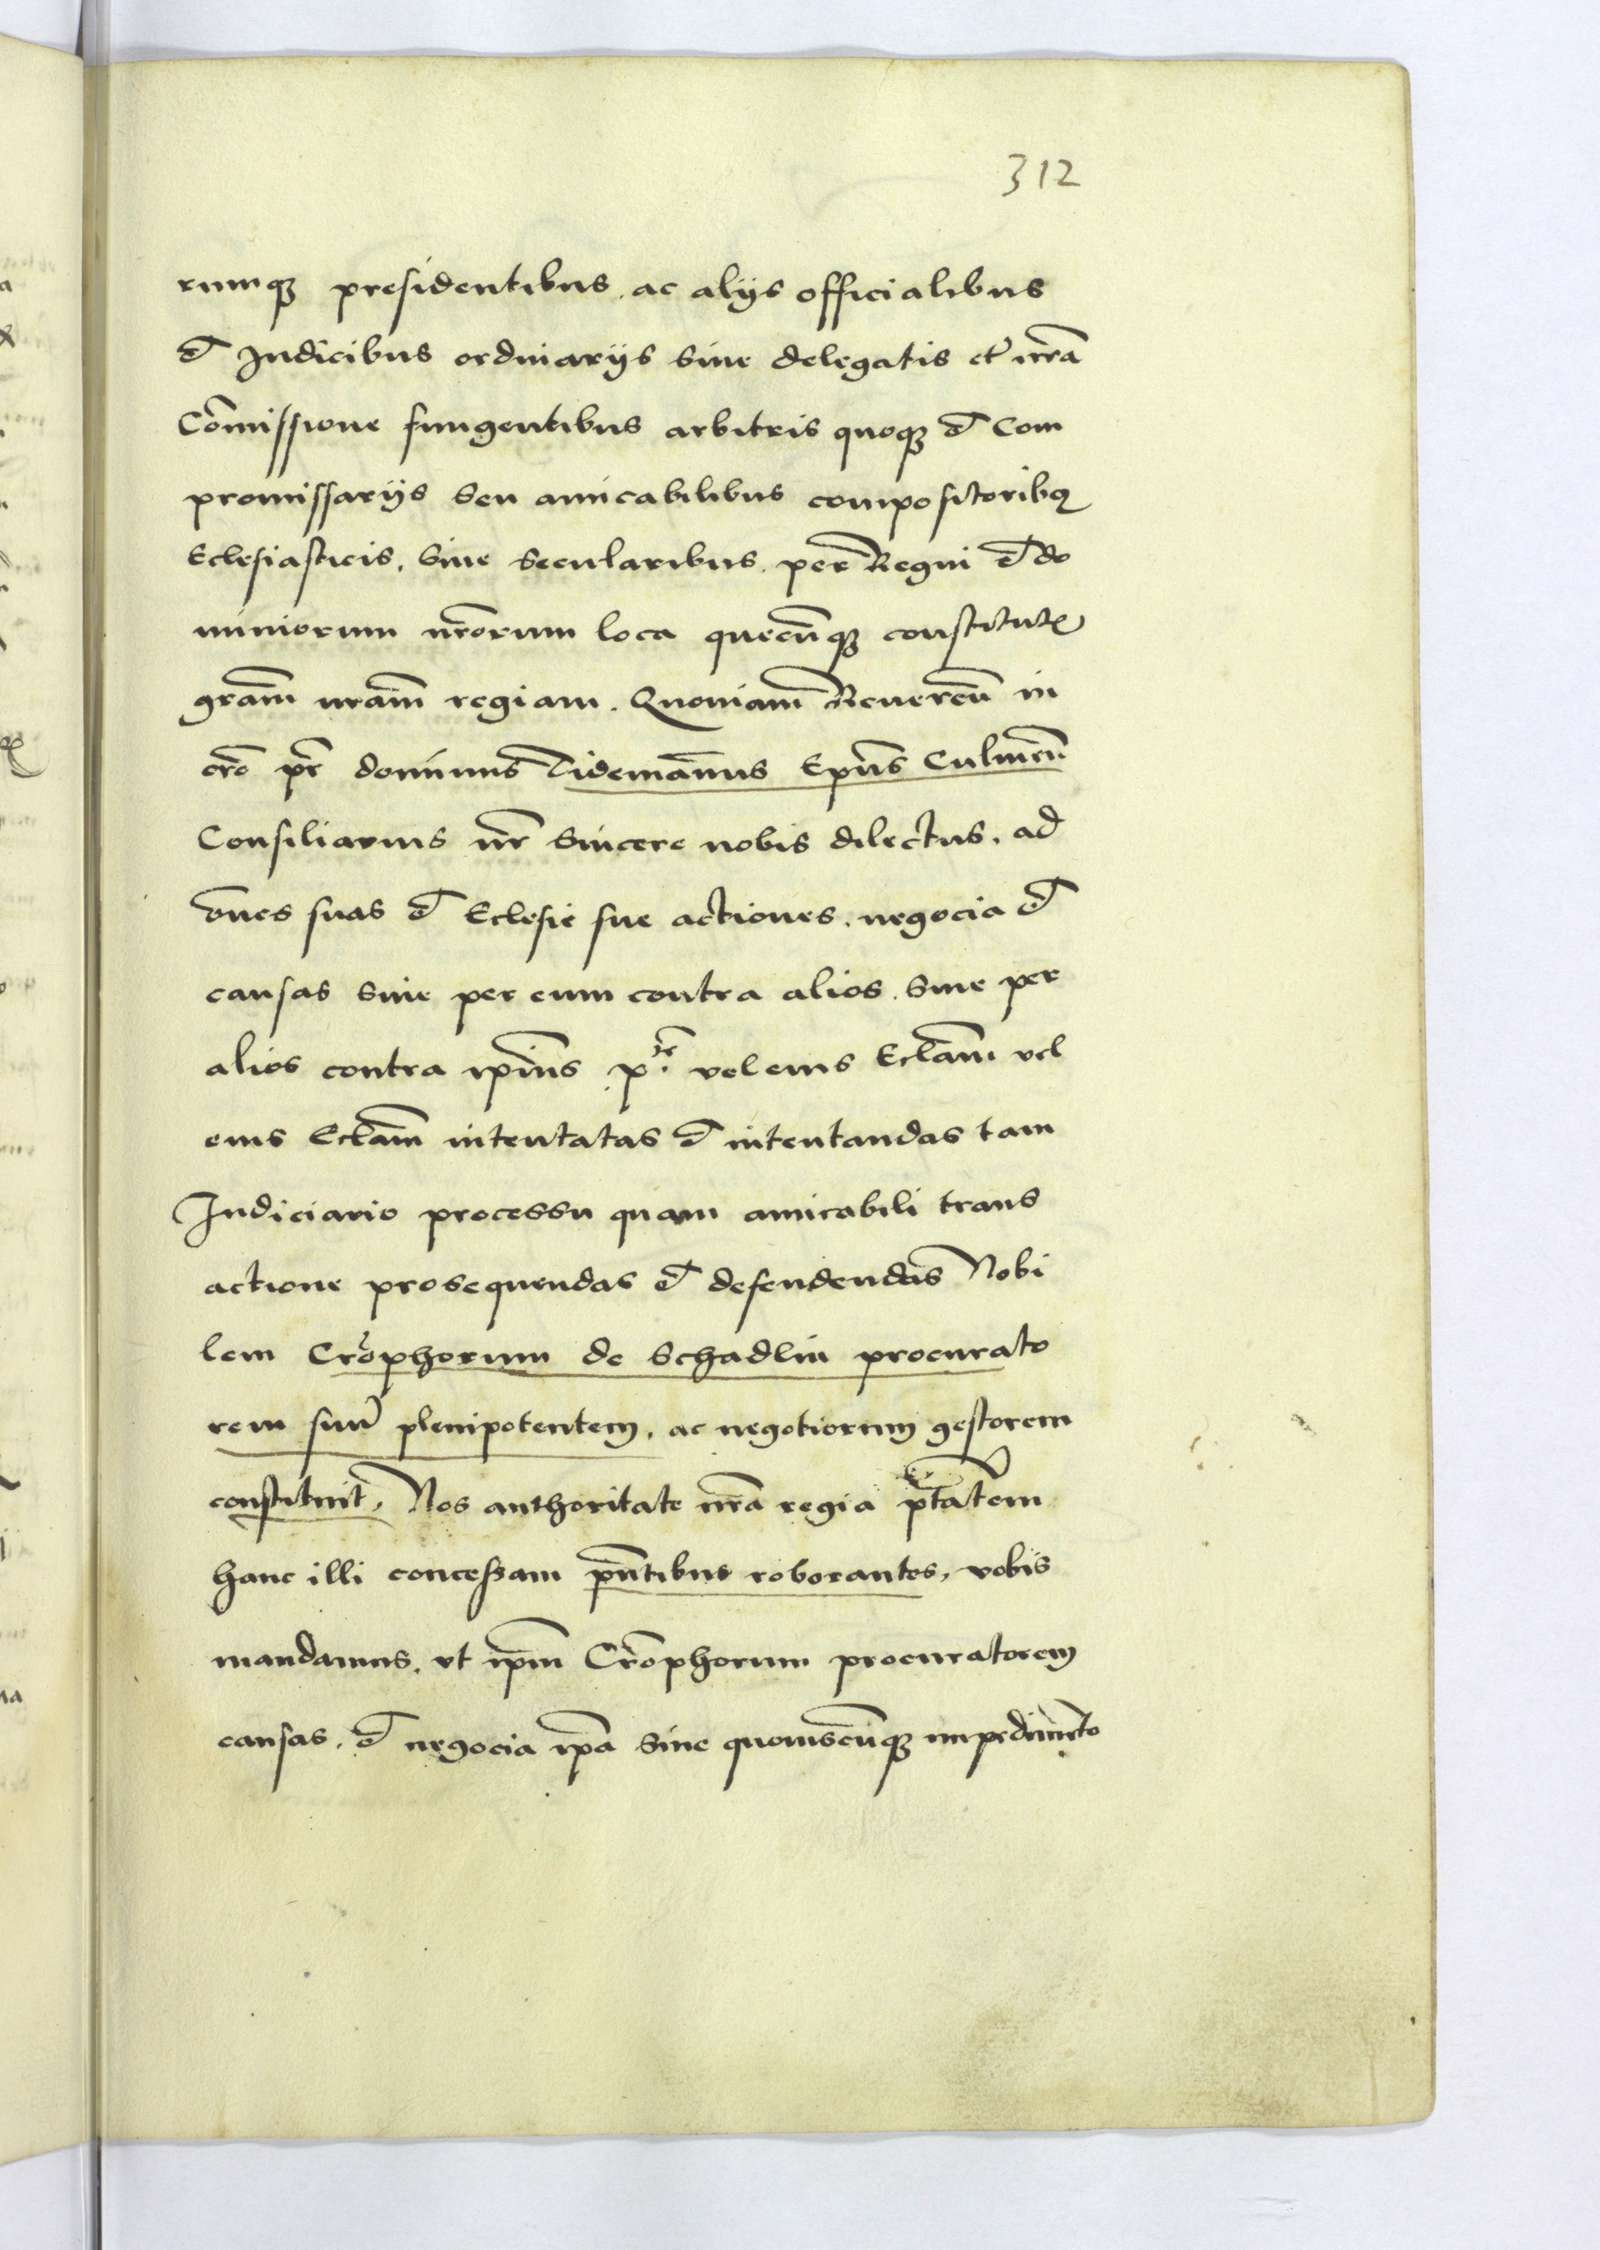 312
rumq₃ presidentibus. ac alijs officialibus
et Judicibus ordinarijs siue delegatis et nr̃a
Com̃issione fungentibus arbitris quoq₃ et Com
promissarijs seu amicabilibus compositoribꝰ
Eclesiasticis, siue secularibus. per Regni et do
miniorum nr̃orum loca quecũq₃ constitutꝭ
grãm nrãm regiam. Quoniam Reuereñ in
cr̃o pr̃ dominus Tidemannus Ep̃us Culmeñ
Consiliarius nr̃ sincere nobis dilectus, ad
oẽs suas et Eclesie sue actiones. negocia et
causas siue per eum contra alios. siue per
alios contra ip̃ius p.ᵗᵉ vel eius Eccl̃am vel
eius Eccl̃am intentatas et intentandas tam
Judiciario processu quam amicabili trans
actione prosequendas et defendendas Nobi
lem Cr̃ophorum de Schadlin procurato
rem suũ plenipotentem, ac negotiorum gestorem
constituit, Nos authoritate nr̃a regia p̃tatem
hanc illi concessam pñtibus roborantes, vobis
mandamus, vt ip̃m Cr̃ophorum procuratorem
causas, et negocia ip̃a sine quouiscũq₃ impedimẽto